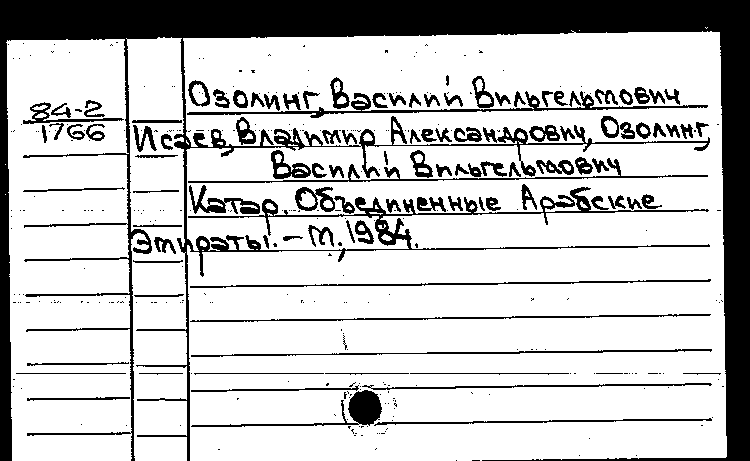 84-2
1766
Озолинг, Василий Вильгельмович
Исаев, Владимир Александрович, Озолинг,
Василий Вильгельмович
Катар. Объединенные Арабские
Эмираты. – М., 1984.